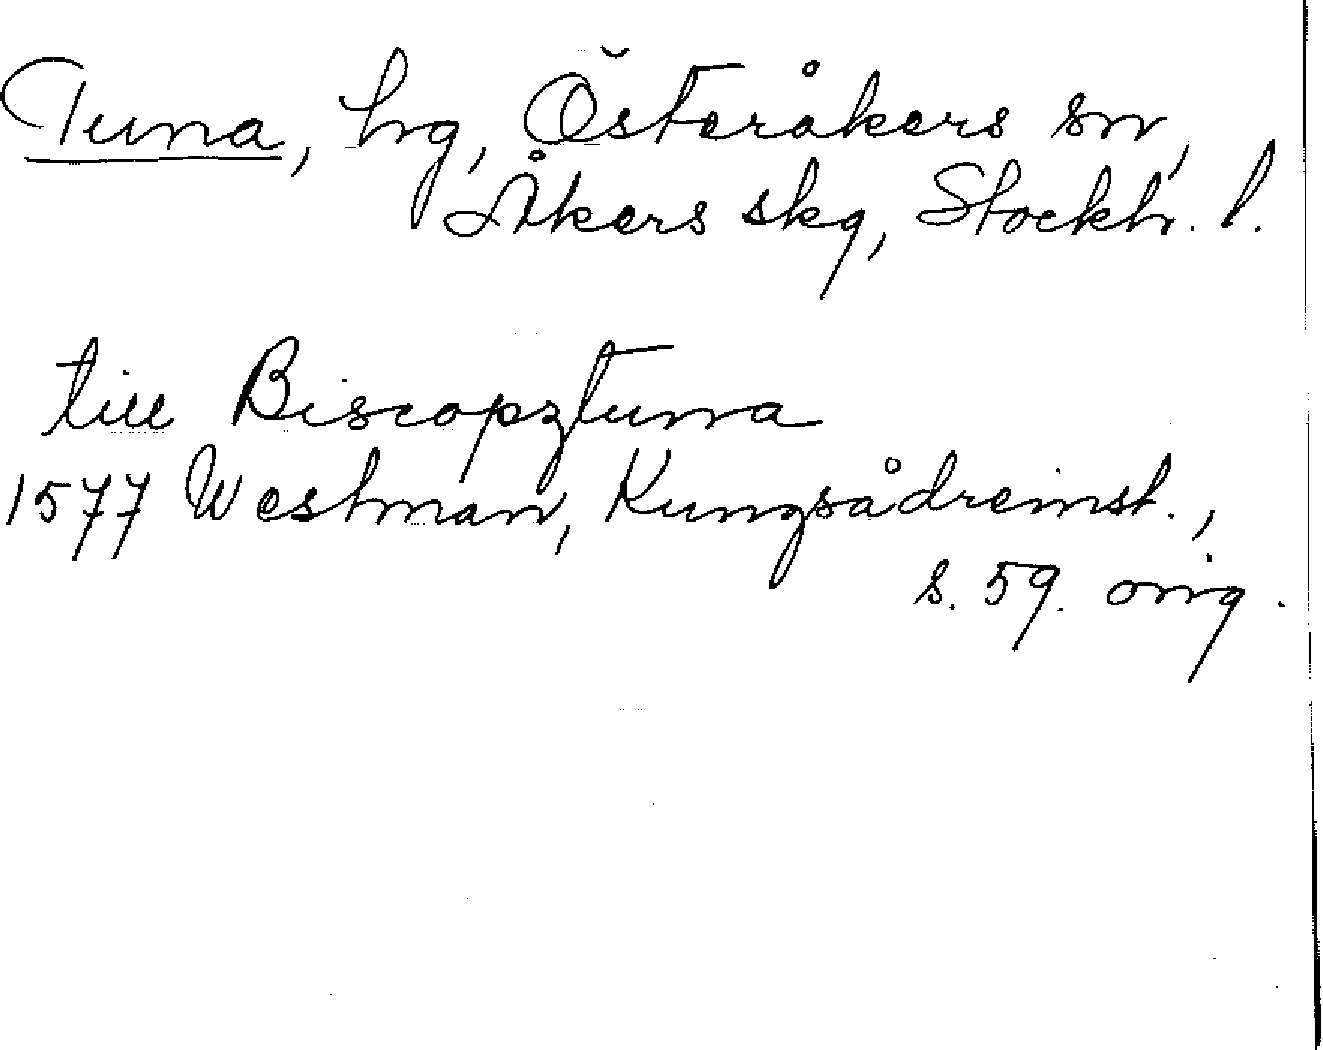 Tuna, hg, Österåkers sn,
Åkers skg, Stockh. l.
till Biscopztuna
1577 Westman, Kungsådreinst.,
s. 59. orig.